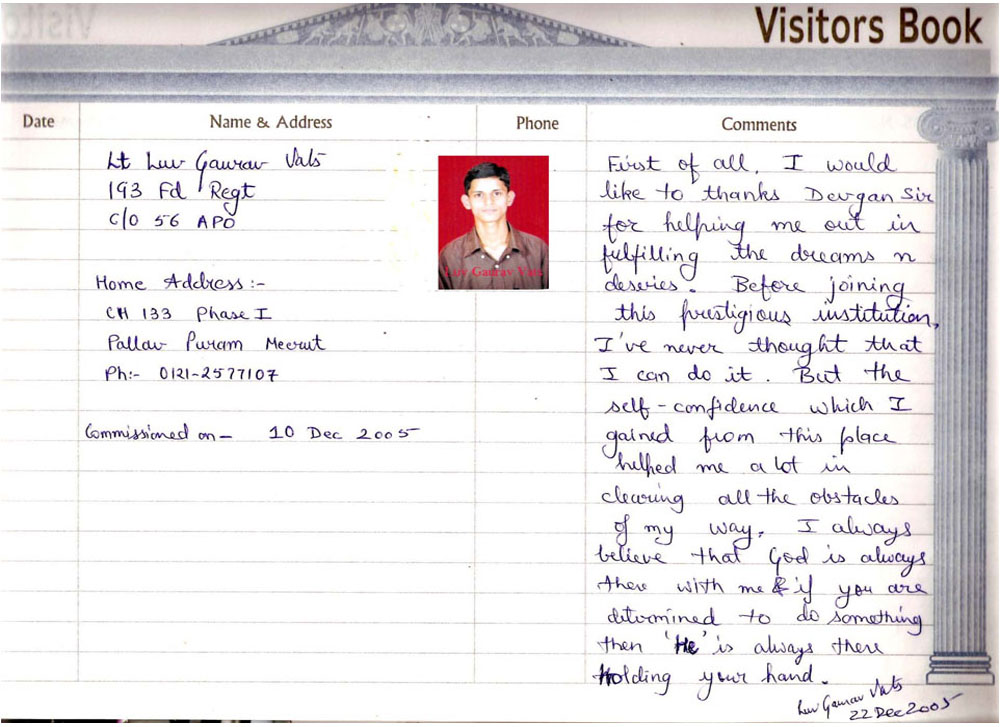 Visitors Book
Date
Name & Address
Phone
Comments
Lt Luv Gaurav Vats
193 Fd Regt
C/O 56 APO
Home Address :-
CH 133 Phase I
Pallav Puram Meerut
Ph:- 0121-2577107
Commissioned on – 10 Dec 2005
Luv Gaurav Vats
First of all, I would
like to thanks Devgan Sir
for helping me out in
fulfilling the dreams n
deseries. Before joining
this prestigious institution,
I've never thought that
I can do it. But the
self-confidence which I
gained from this place
helped me a lot in
clearing all the obstacles
of my way. I always
believe that God is always
there with me & if you are
determined to do something
then 'He' is always there
Holding your hand.
Luv Gaurav Vats
22 Dec 2005